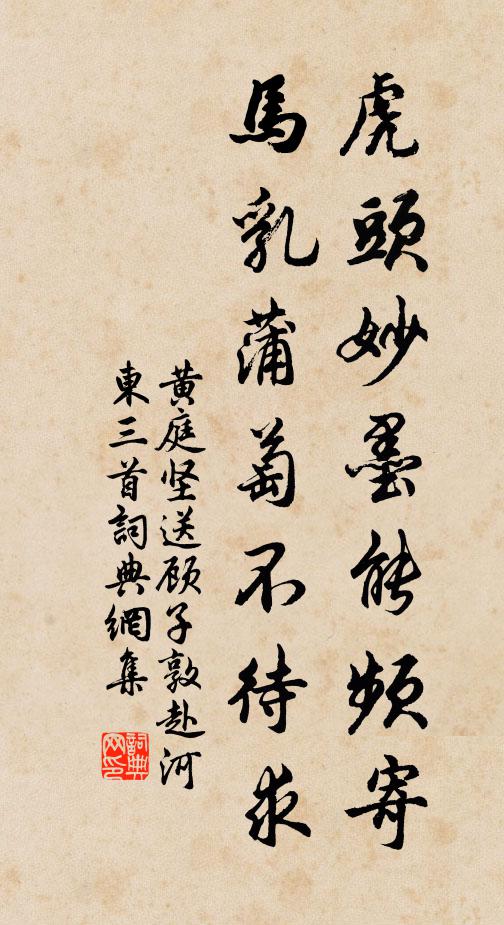 虎頭妙墨能頻寄
馬乳蒲萄不待求
黄庭坚送顾子敦赴河
東三首詞典網集
詞典
网印